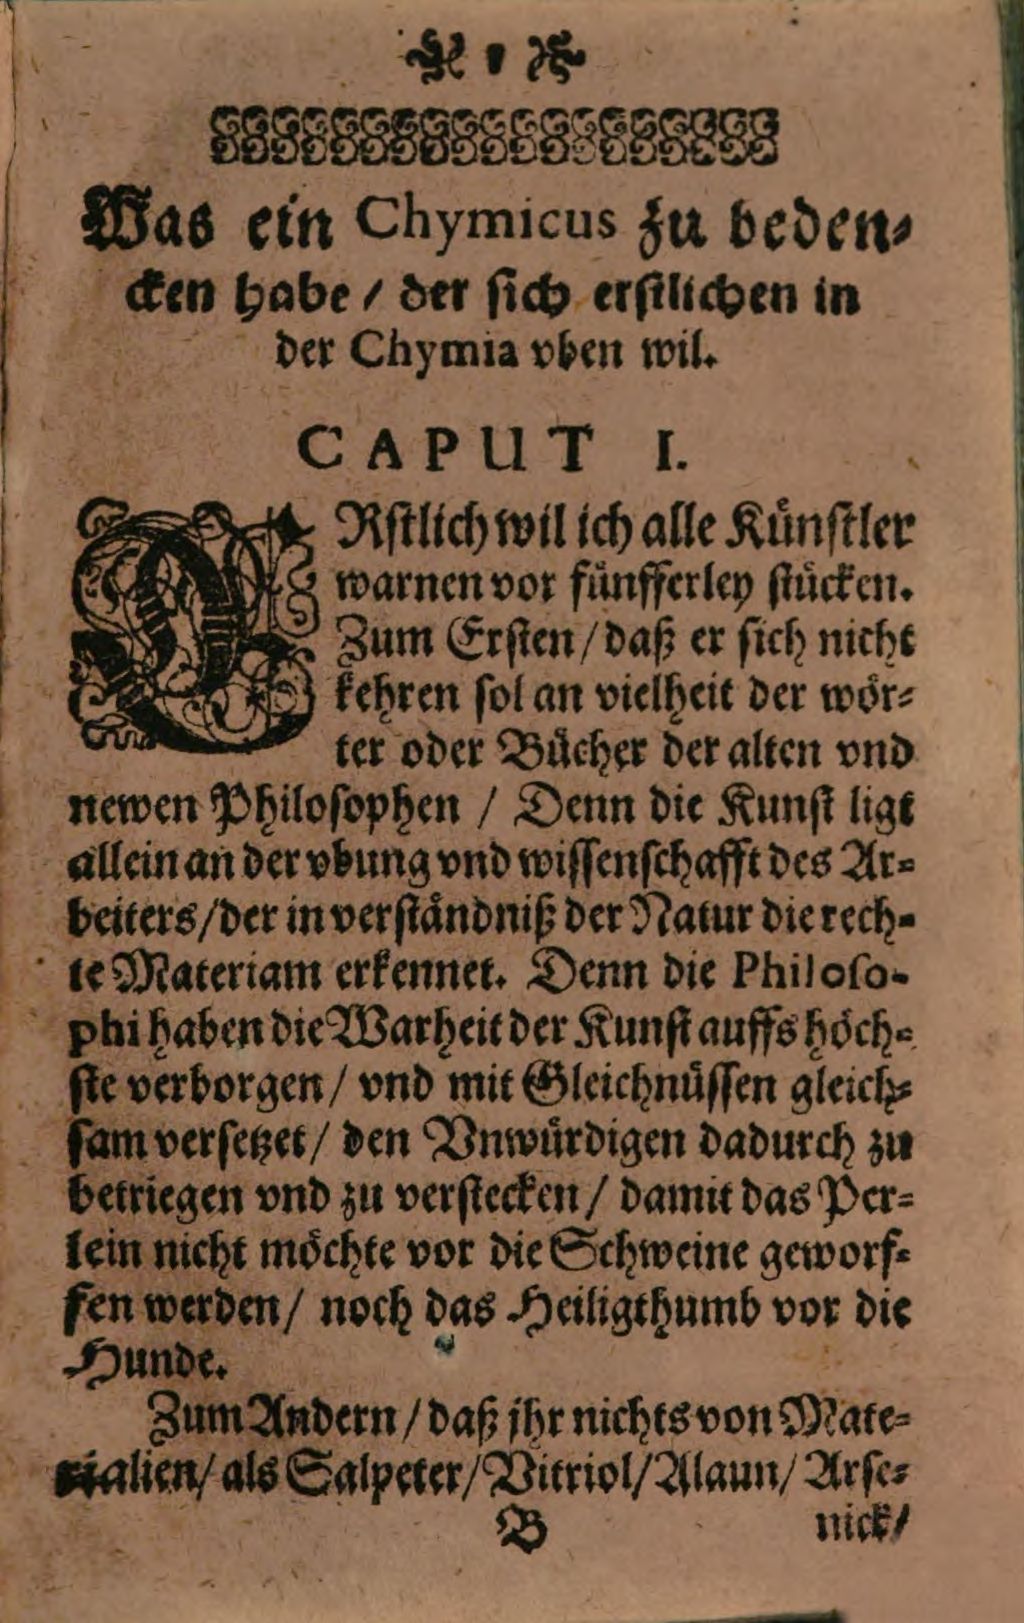 1
Was ein Chymicus zu beden⸗
cken habe / der sich erstlichen in
der Chymia vben wil.
CAPUT I.
ERstlich wil ich alle Künstler
warnen vor fünfferley stücken.
Zum Ersten / daß er sich nicht
kehren sol an vielheit der wör⸗
ter oder Bücher der alten vnd
newen Philosophen / Denn die Kunst ligt
allein an der vbung vnd wissenschafft des Ar⸗
beiters / der in verständniß der Natur die rech⸗
te Materiam erkennet. Denn die Philoso-
phi haben die Warheit der Kunst auffs höch⸗
ste verborgen / vnd mit Gleichnüssen gleich⸗
sam versetzet / den Vnwürdigen dadurch zu
betriegen vnd zu verstecken / damit das Per⸗
lein nicht möchte vor die Schweine geworf⸗
fen werden / noch das Heiligthumb vor die
Hunde.
Zum Andern / daß jhr nichts von Mate⸗
rialien / als Salpeter / Vitriol / Alaun / Arse⸗
B nick /